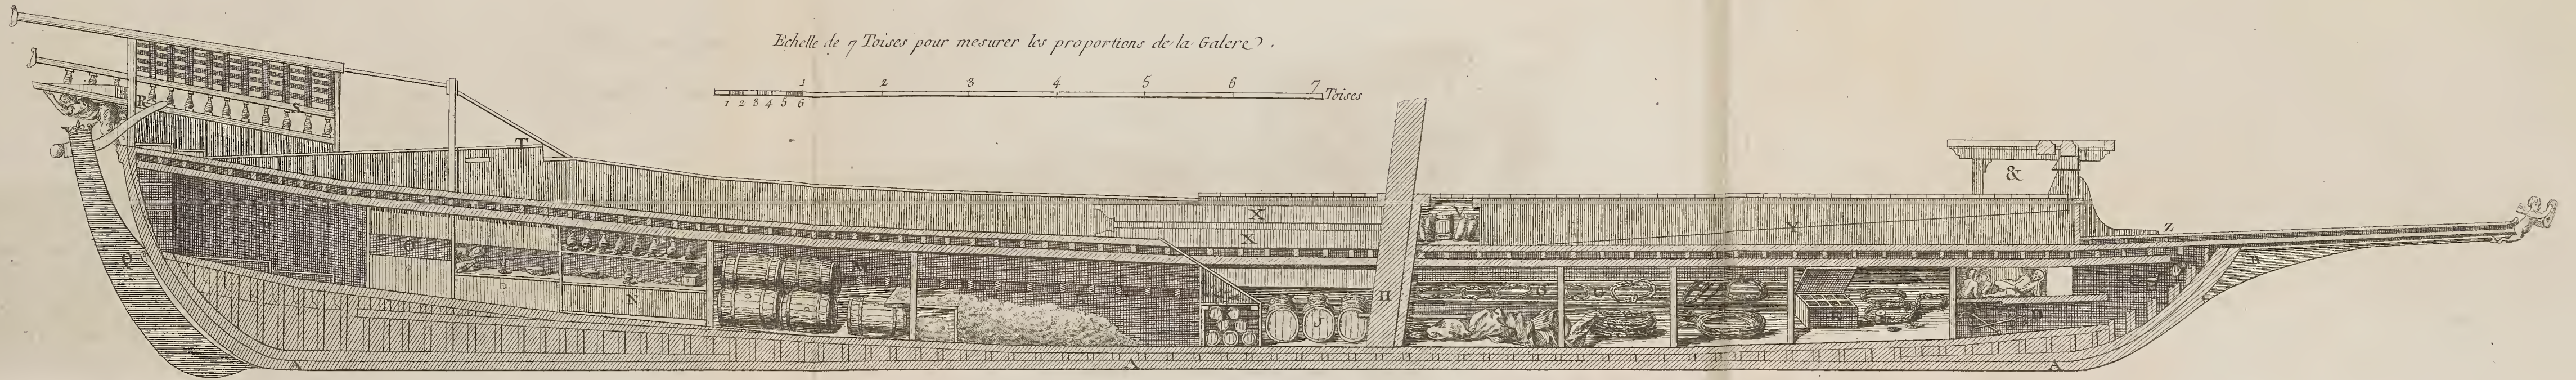 Echelle de 7 Toises pour mesurer les proportions de la Galere.
1 2 3 4 5 6 7 Toises
1 2 3 4 5 6
R S
T
&
X
V
X
Y
Z
P
O
Q
M
N
H
J
B
C
D
A A A